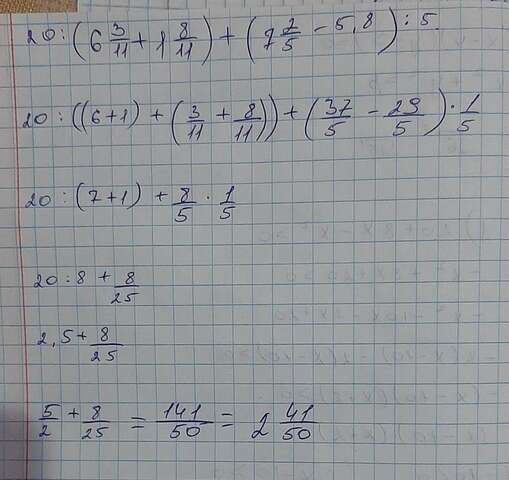 20 : (6 3/11 + 1 8/11) + (7 2/5 - 5,8) : 5
20 : ((6+1) + (3/11 + 8/11)) + (37/5 - 29/5) · 1/5
20 : (7+1) + 8/5 · 1/5
20 : 8 + 8/25
2,5 + 8/25
5/2 + 8/25 = 141/50 = 2 41/50